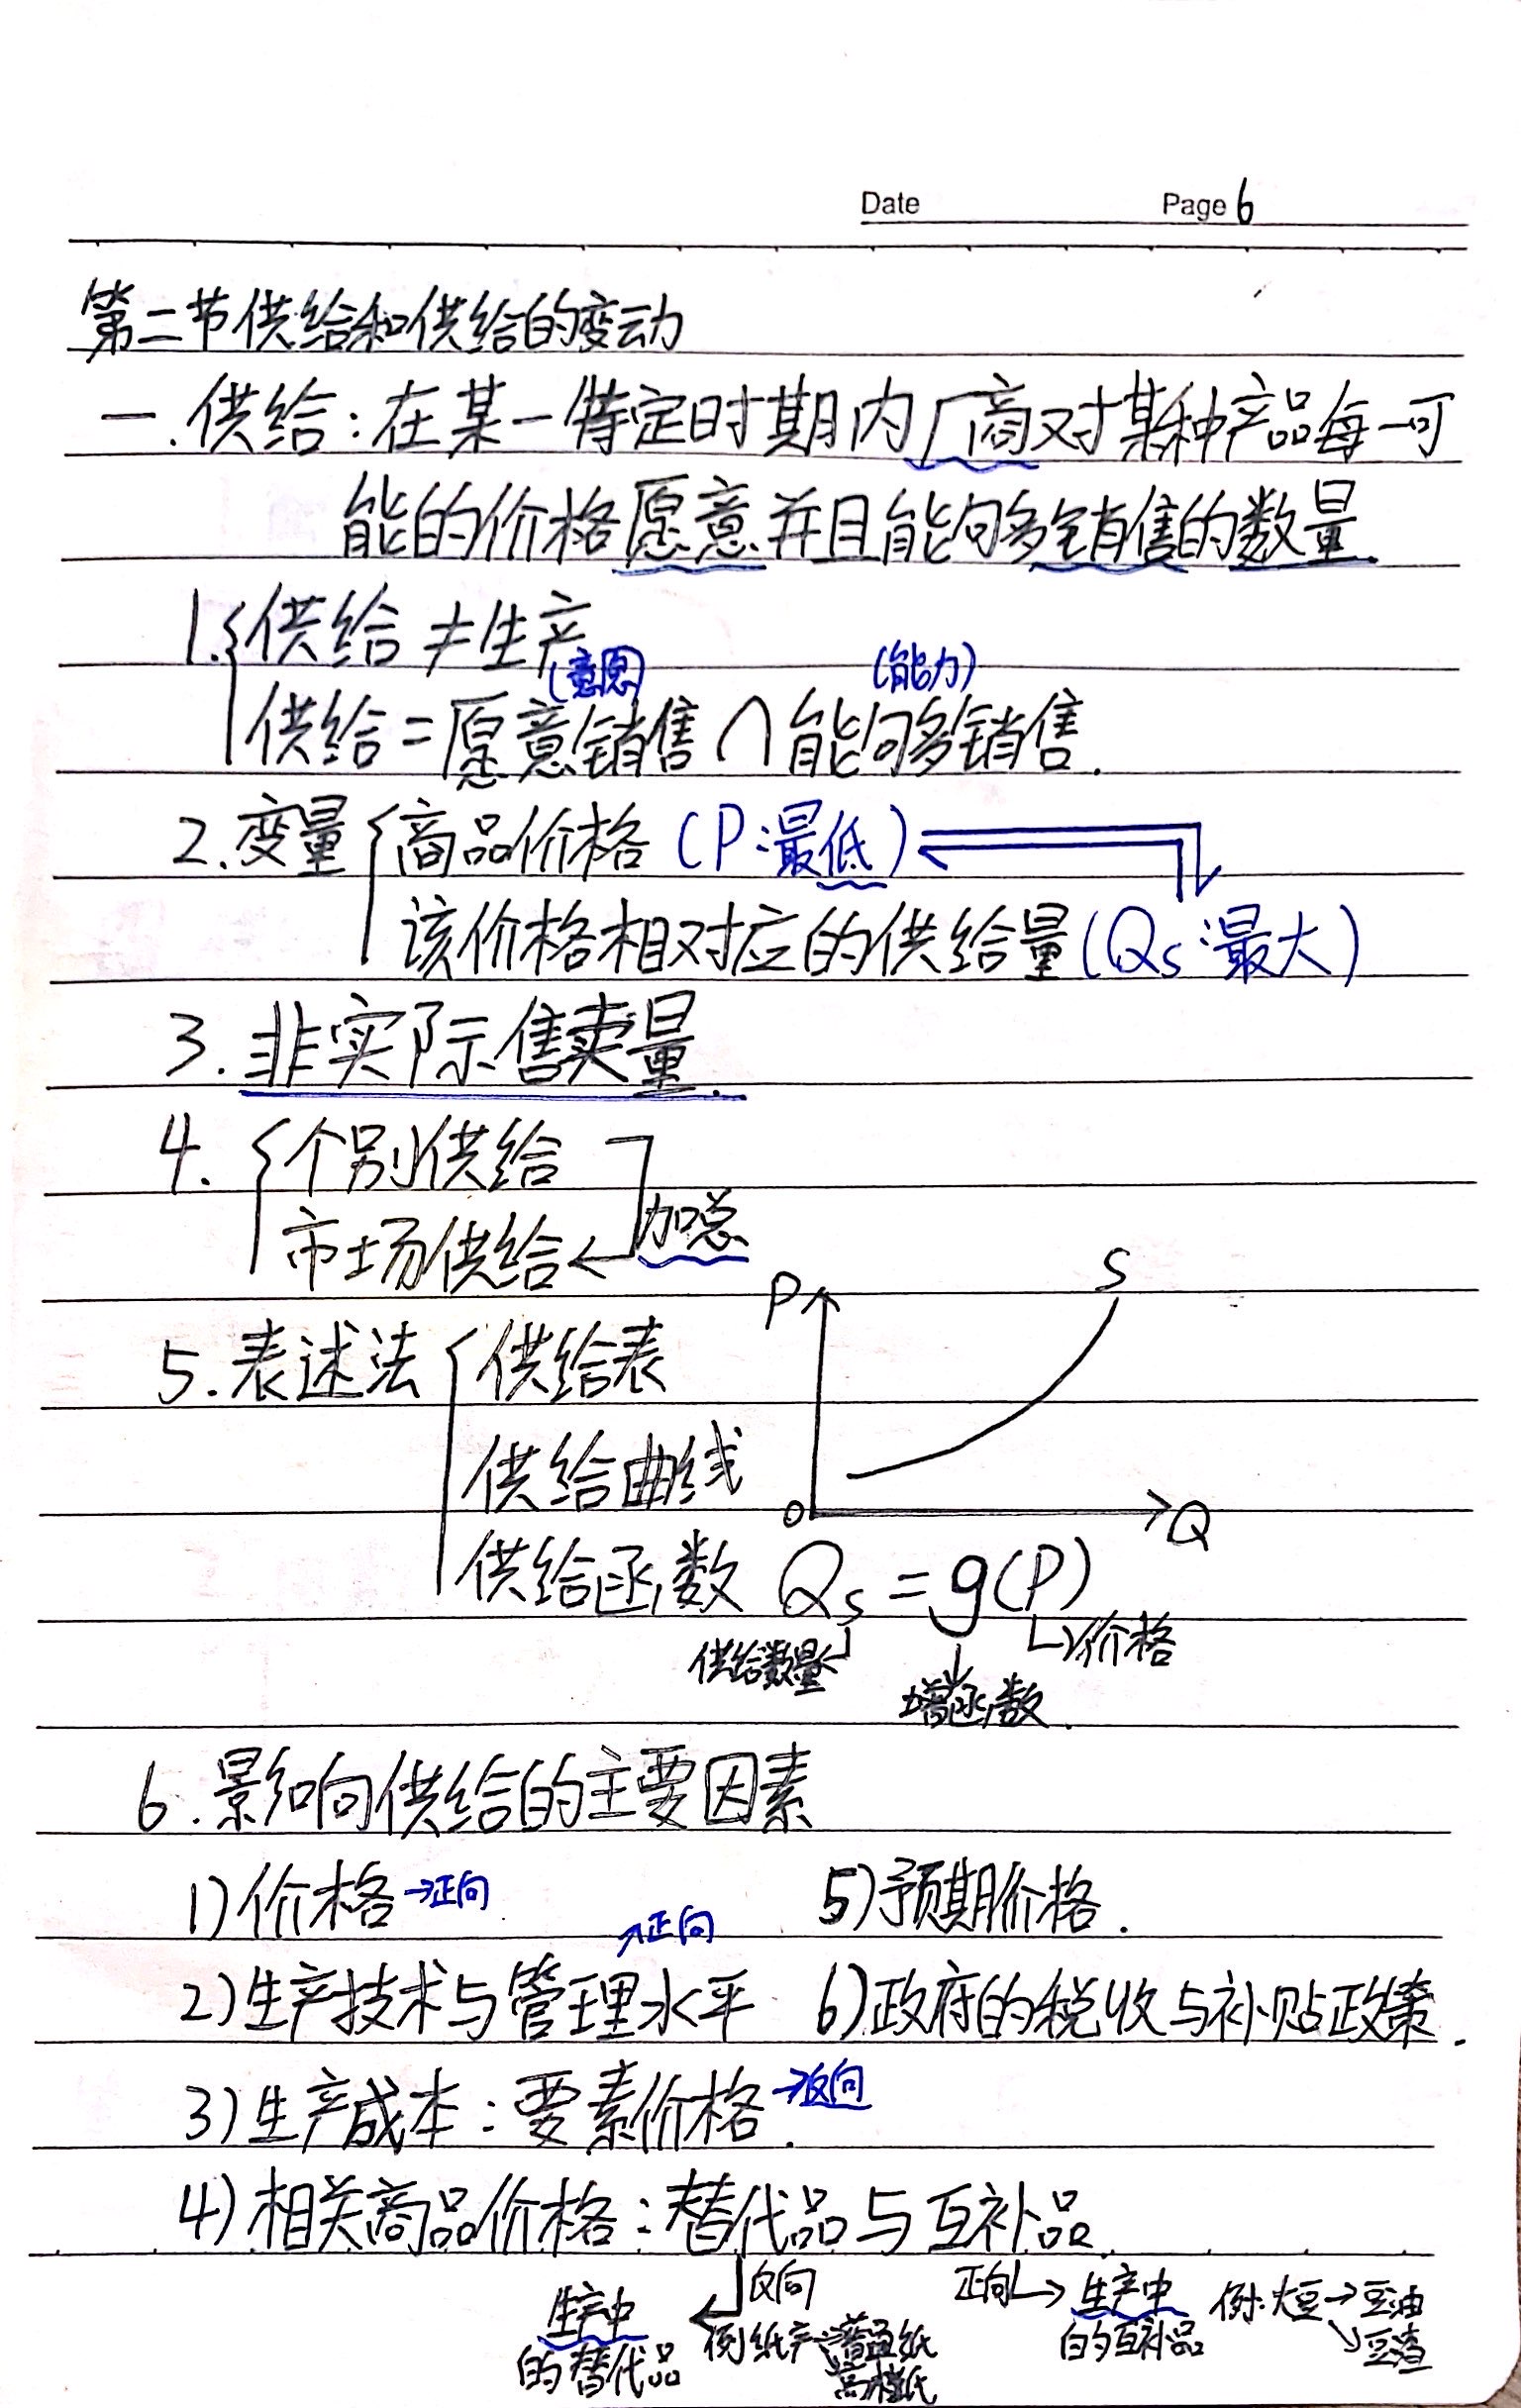 Date Page 6
第二节供给和供给的变动
一.供给:在某一特定时期内厂商对某种产品每一可
能的价格愿意并且能够销售的数量.
1.{供给≠生产
(意愿) (能力)
供给=愿意销售∩能够销售.
2.变量{商品价格(P:最低)
该价格相对应的供给量(Qs:最大)
3.非实际售卖量.
4.{个别供给
加总
市场供给←
P S
5.表述法{供给表
供给曲线
O Q
供给函数 Qs=g(P)
供给数量 ↓ →价格
增函数.
6.影响供给的主要因素
1)价格→正向 5)预期价格.
↗正向
2)生产技术与管理水平 6)政府的税收与补贴政策.
3)生产成本:要素价格.→反向
4)相关商品价格:替代品与互补品.
反向 正向→生产中 例:大豆→豆油
生产中 ← 例纸产→普通纸 的互补品 ↘豆渣
的替代品 高档纸